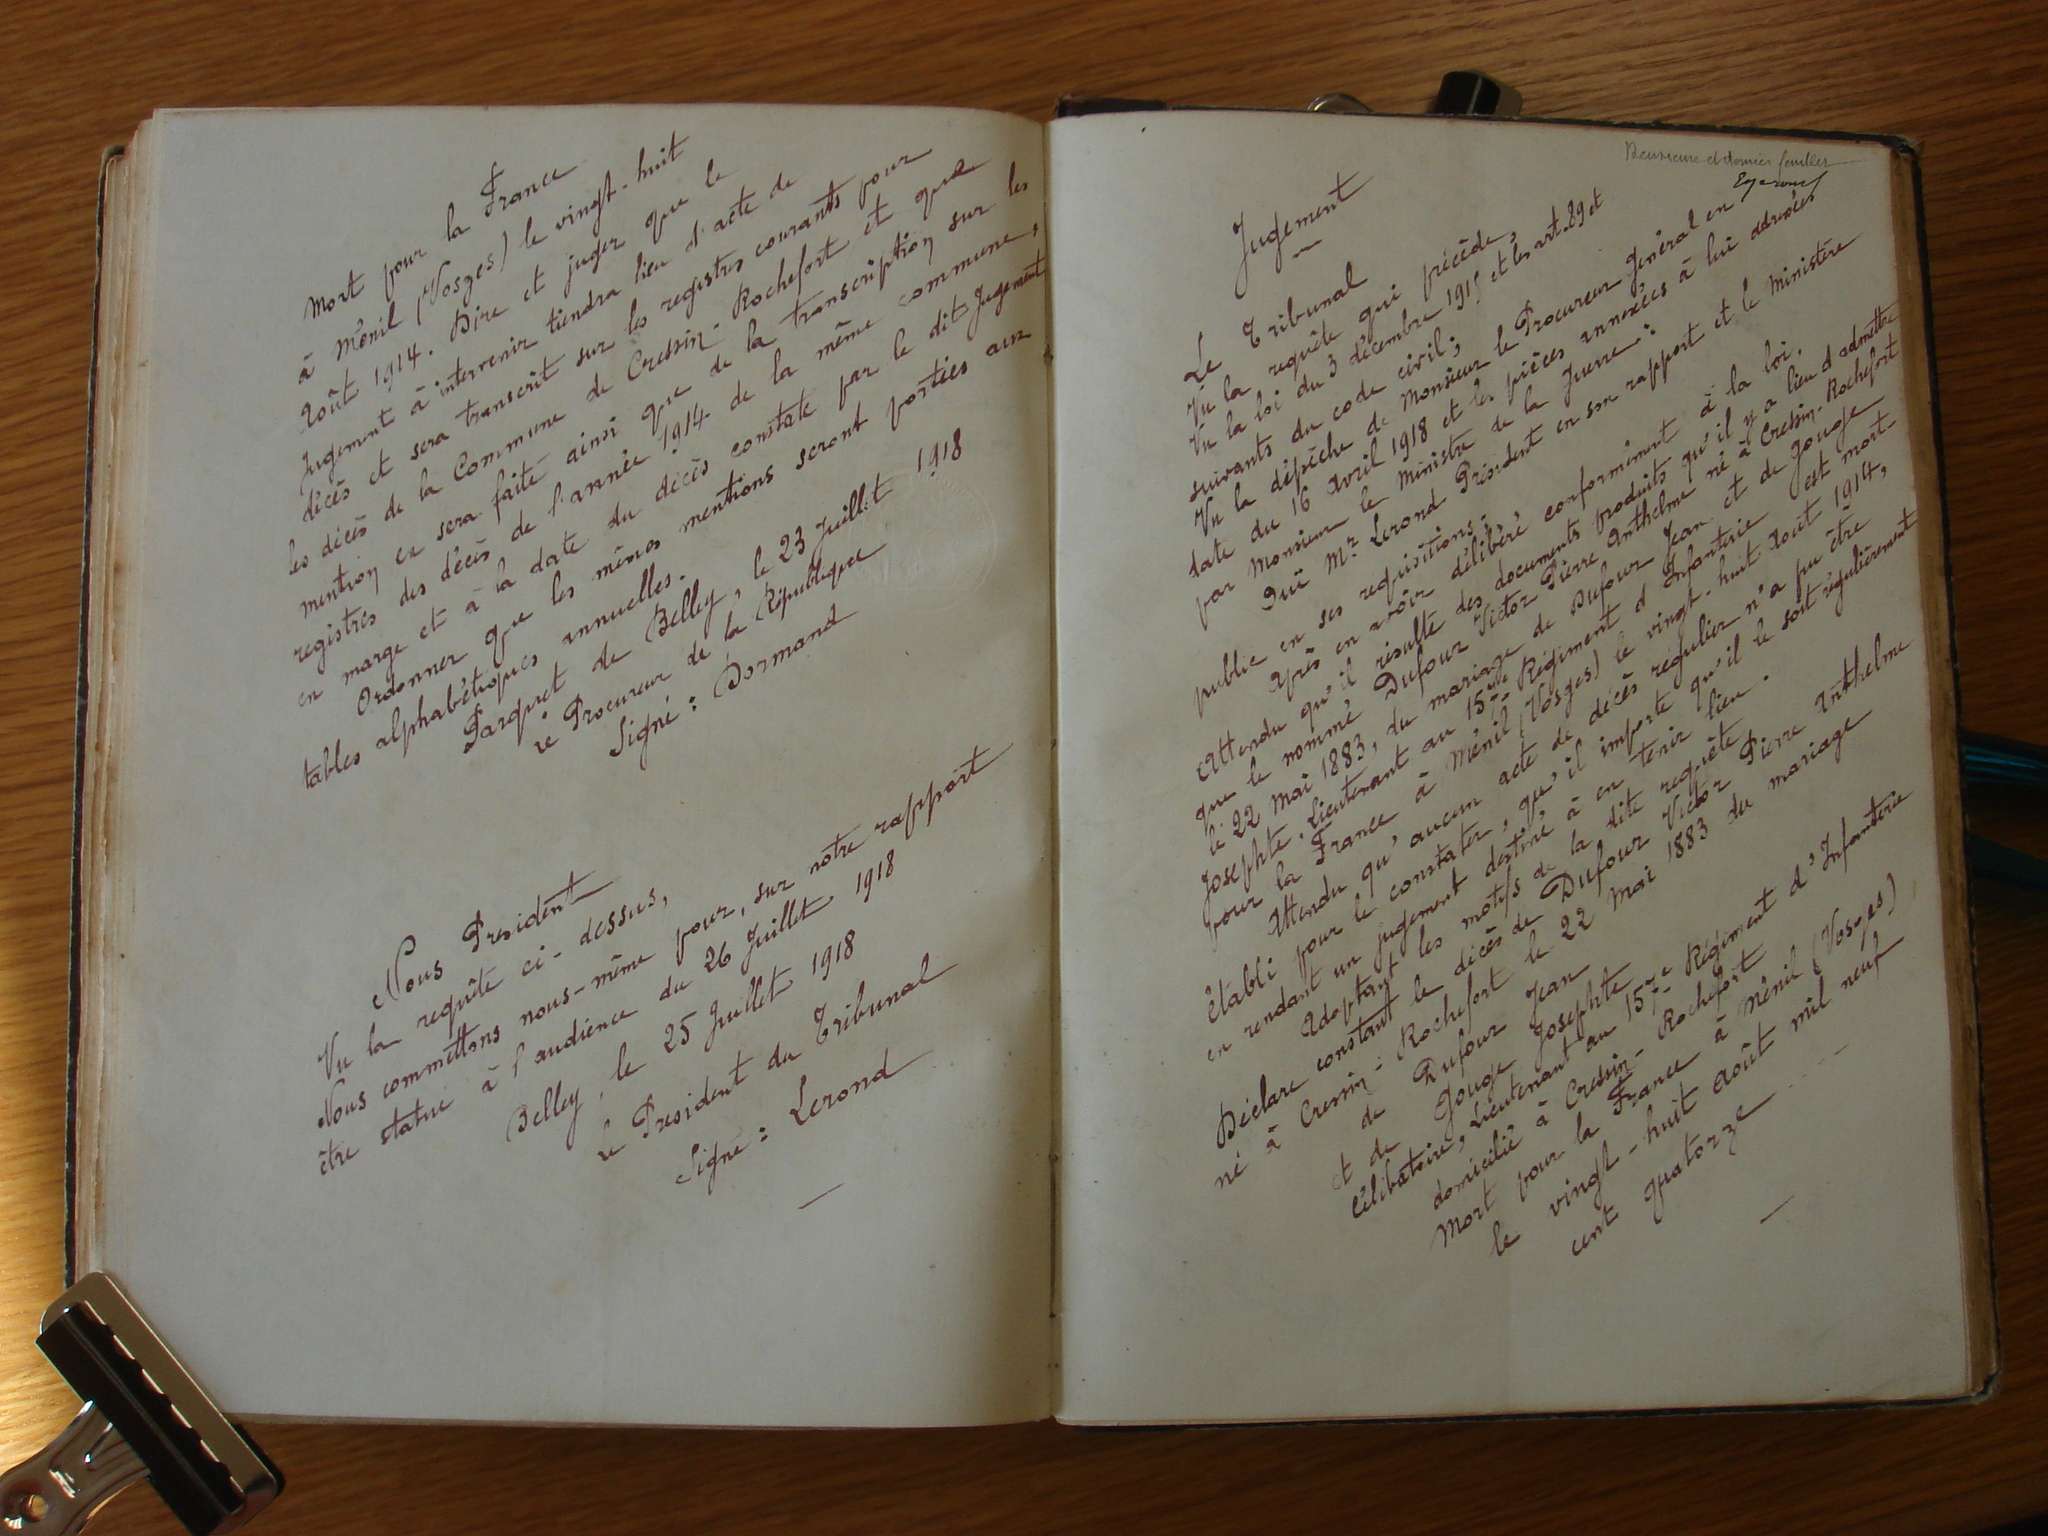 Mort pour la France
à Ménil (Vosges) le vingt-huit
Août 1914. Dire et juger que le
Jugement à intervenir tiendra lieu d'acte de
décès et sera transcrit sur les registres courants pour
les décès de la Commune de Cressin-Rochefort et que
mention en sera faite ainsi que de la transcription sur les
registres des décès de l'année 1914 de la même commune,
en marge et à la date du décès constaté par le dit Jugement
Ordonner que les mêmes mentions seront portées aux
tables alphabétiques annuelles.
Parquet de Belley, le 23 Juillet 1918
le Procureur de la République
Signé: Dormand
Nous Président
Vu la requête ci-dessus,
Nous commettons nous-même pour, sur notre rapport
être statué à l'audience du 26 Juillet 1918
Belley, le 25 Juillet 1918
le Président du Tribunal
Signé: Lerond
—
Deuxième et dernier feuillet
Jugement
Le Tribunal
Vu la requête qui précède,
Vu la loi du 3 décembre 1915 et les art. 89 et
suivants du code civil;
Vu la dépêche de Monsieur le Procureur Général en
date du 16 avril 1918 et les pièces annexées à lui adressées
par Monsieur le Ministre de la Guerre:
Ouï Mr Lerond Président en son rapport et le Ministère
public en ses requisitions.
Après en avoir délibéré conformément à la loi.
Attendu qu'il résulte des documents produits qu'il y a lieu d'admettre
que le nommé Dufour Victor Pierre Anthelme né à Cressin-Rochefort
le 22 Mai 1883, du mariage de Dufour Jean et de Gouge
Josephte, Lieutenant au 15me Régiment d'Infanterie est mort
pour la France à Ménil (Vosges) le vingt-huit Août 1914,
Attendu qu'aucun acte de décès régulier n'a pu être
établi pour le constater, qu'il importe qu'il le soit régulièrement
en rendant un jugement destiné à en tenir lieu.
Adoptant les motifs de la dite requête
Déclare constant le décès de Dufour Victor Pierre Anthelme
né à Cressin-Rochefort le 22 Mai 1883 du mariage
de Dufour Jean
et de Gouge Josephte
Célibataire, Lieutenant au 15me Régiment d'Infanterie
domicilié à Cressin-Rochefort
Mort pour la France à Ménil (Vosges)
le vingt-huit Août mil neuf
cent quatorze
—